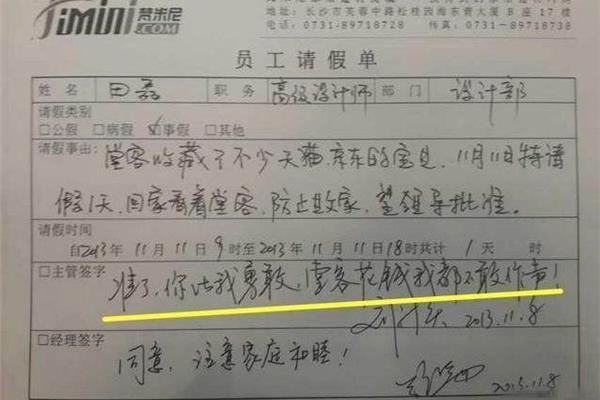 imini 梵米尼
地址：长沙市芙蓉中路松桂园海东青大厦B座17楼
电话：0731-89718728 传真：0731-89718738
员工请假单
姓名 田磊 职务 高级设计师 部门 设计部
请假类别
□公假 □病假 ☑事假 □其他
请假事由：堂客收藏了不少天猫、京东的宝贝，11月11日特请
假1天，回家看着堂客，防止败家，望领导批准。
请假时间
自2013年11月11日9时至2013年11月11日18时共计1天 时
□主管签字
准了，你比我勇敢，堂客花钱我都不敢作声！
2013.11.8
□经理签字
同意，注意家庭和睦！
2013.11.8